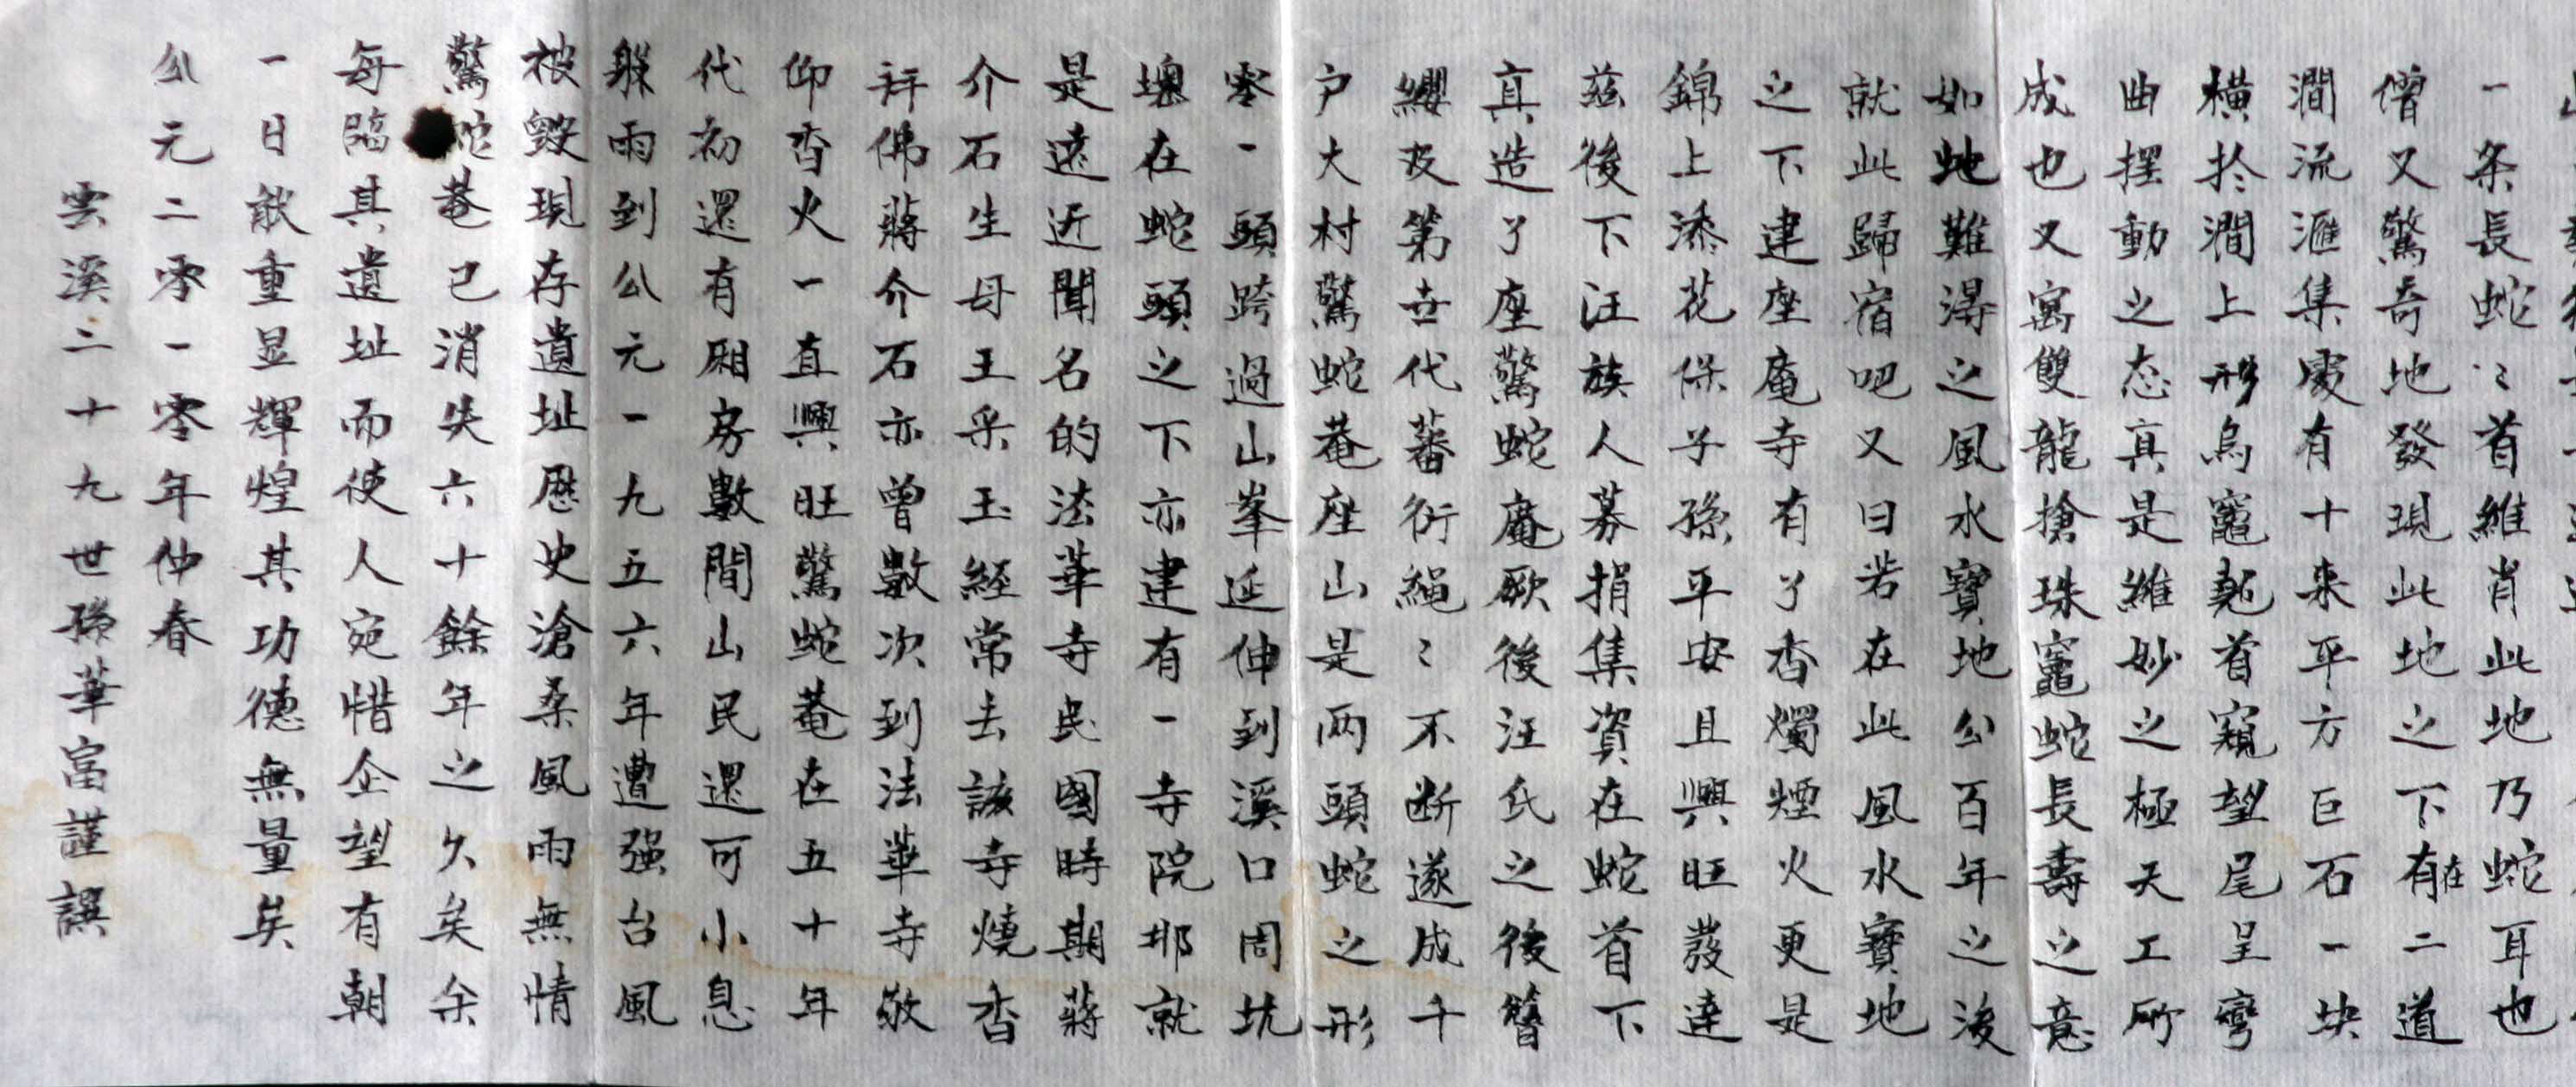 一条長蛇〻首維肖此地乃蛇耳也
僧又驚奇地發現此地之下有在二道
澗流滙集處有十来平方巨石一块
横扵澗上形烏竈起首窺望尾呈彎
曲摆動之态真是維妙之極天工所
成也又寓雙龍搶珠竈蛇長壽之意
如虵難得之風水寶地公百年之後
就此歸宿吧又曰若在此風水寶地
之下建座庵寺有了香燭煙火更是
錦上添花保子孫平安且興旺發達
兹後下汪族人募捐集資在蛇首下
真造了座驚蛇庵厥後汪氏之後簪
纓及第世代蕃衍繩〻不断遂成千
户大村驚蛇菴座山是两頭蛇之形
零一頭跨過山峯延伸到溪口周坑
塸在蛇頭之下亦建有一寺院那就
是遠近聞名的法華寺民國時期蔣
介石生母王采玉經常去該寺燒香
拜佛蔣介石亦曾數次到法華寺敬
仰香火一直興旺驚蛇菴在五十年
代初還有厢房數間山民還可小息
躲雨到公元一九五六年遭强台風
被毀現存遺址歷史滄桑風雨無情
驚蛇菴已消失六十餘年之久矣余
每臨其遺址而使人宛惜企望有朝
一日能重显輝煌其功德無量矣
公元二零一零年仲春
雲溪三十九世孫華富謹譔